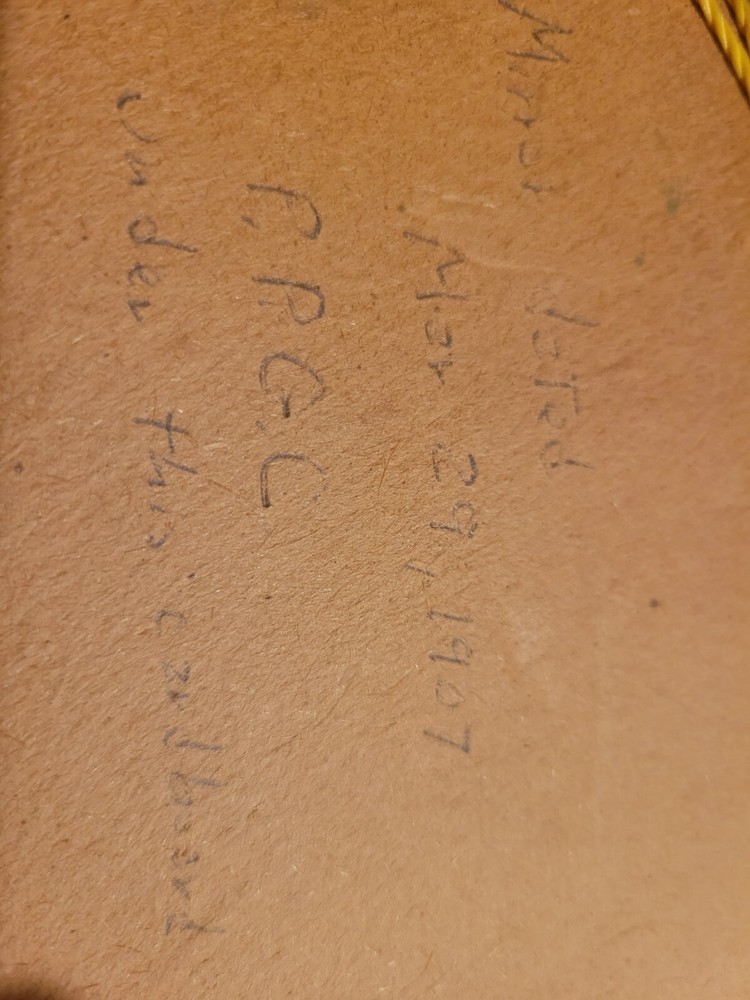 Mirror dated
Mar 29, 1907
P. P. G. C
under this cardboard